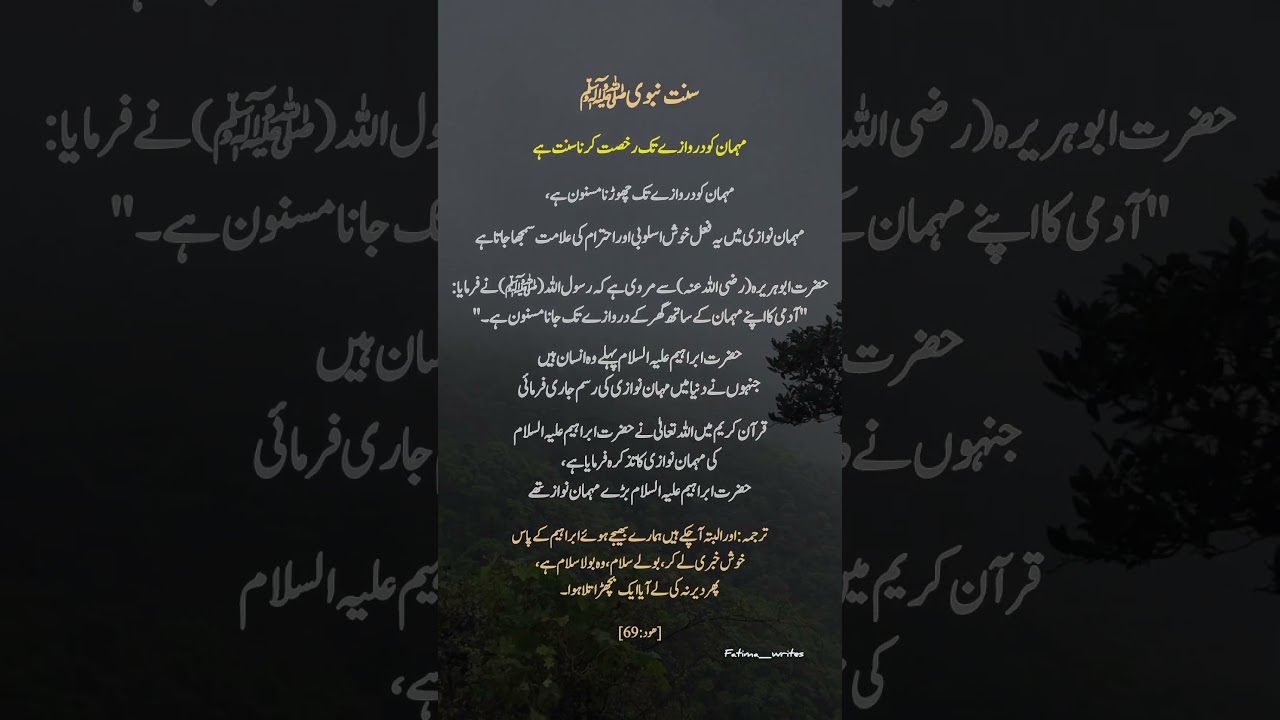 سنت نبوی ﷺ
مہمان کو دروازے تک رخصت کرنا سنت ہے
مہمان کو دروازے تک چھوڑنا مسنون ہے،
مہمان نوازی میں یہ فعل خوش اسلوبی اور احترام کی علامت سمجھا جاتا ہے
حضرت ابو ہریرہ (رضی اللہ عنہ) سے مروی ہے کہ رسول اللہ (ﷺ) نے فرمایا:
"آدمی کا اپنے مہمان کے ساتھ گھر کے دروازے تک جانا مسنون ہے۔"
حضرت ابراہیم علیہ السلام پہلے وہ انسان ہیں
جنہوں نے دنیا میں مہان نوازی کی رسم جاری فرمائی
قرآن کریم میں اللہ تعالٰی نے حضرت ابراہیم علیہ السلام
کی مہمان نوازی کا تذکرہ فرمایا ہے،
حضرت ابراہیم علیہ السلام بڑے مہمان نواز تھے
ترجمہ: اور البتہ آچکے ہیں ہمارے بھیجے ہوئے ابراہیم کے پاس
خوش خبری لے کر، بولے سلام، وہ بولا سلام ہے،
پھر دیر نہ کی لے آیا ایک بچھڑا تلا ہوا۔
[ھود:69]
Fatima__writes